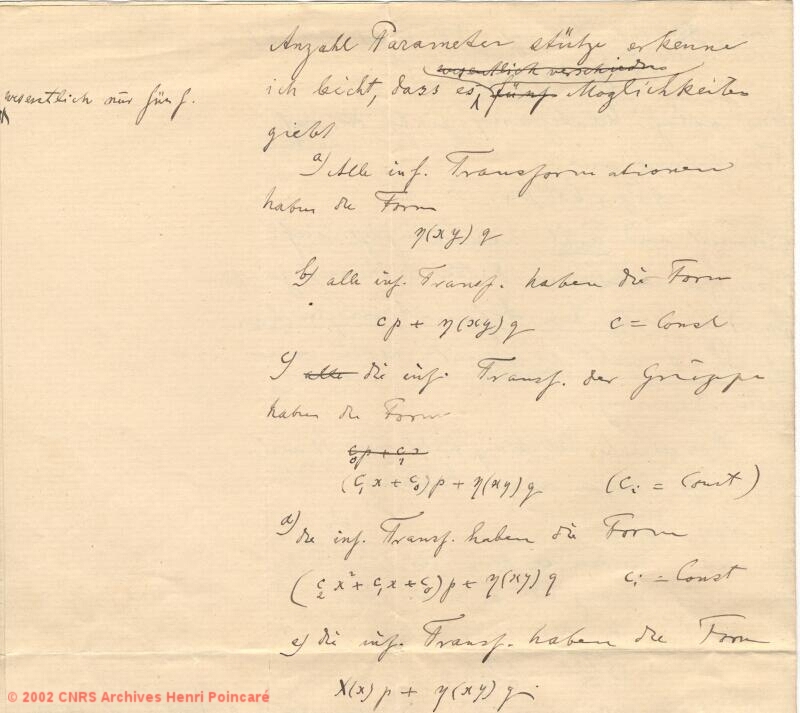 Anzahl Parameter stütze erkenne
wesentlich verschiedene
ich leicht, dass es fünf Möglichkeiten
wesentlich nur fünf.
giebt
a) Alle inf. Transformationen
haben die Form
η(xy) q
b) alle inf. Transf. haben die Form
cp + η(xy) q c = Const
c) alle die inf. Transf. der Gruppe
haben die Form
c₀p + c₁x
(c₁x + c₀)p + η(xy) q (cᵢ = Const)
d) die inf. Transf. haben die Form
(c₂x² + c₁x + c₀)p + η(xy) q cᵢ = Const
e) die inf. Transf. haben die Form
X(x) p + η(xy) q.
© 2002 CNRS Archives Henri Poincaré